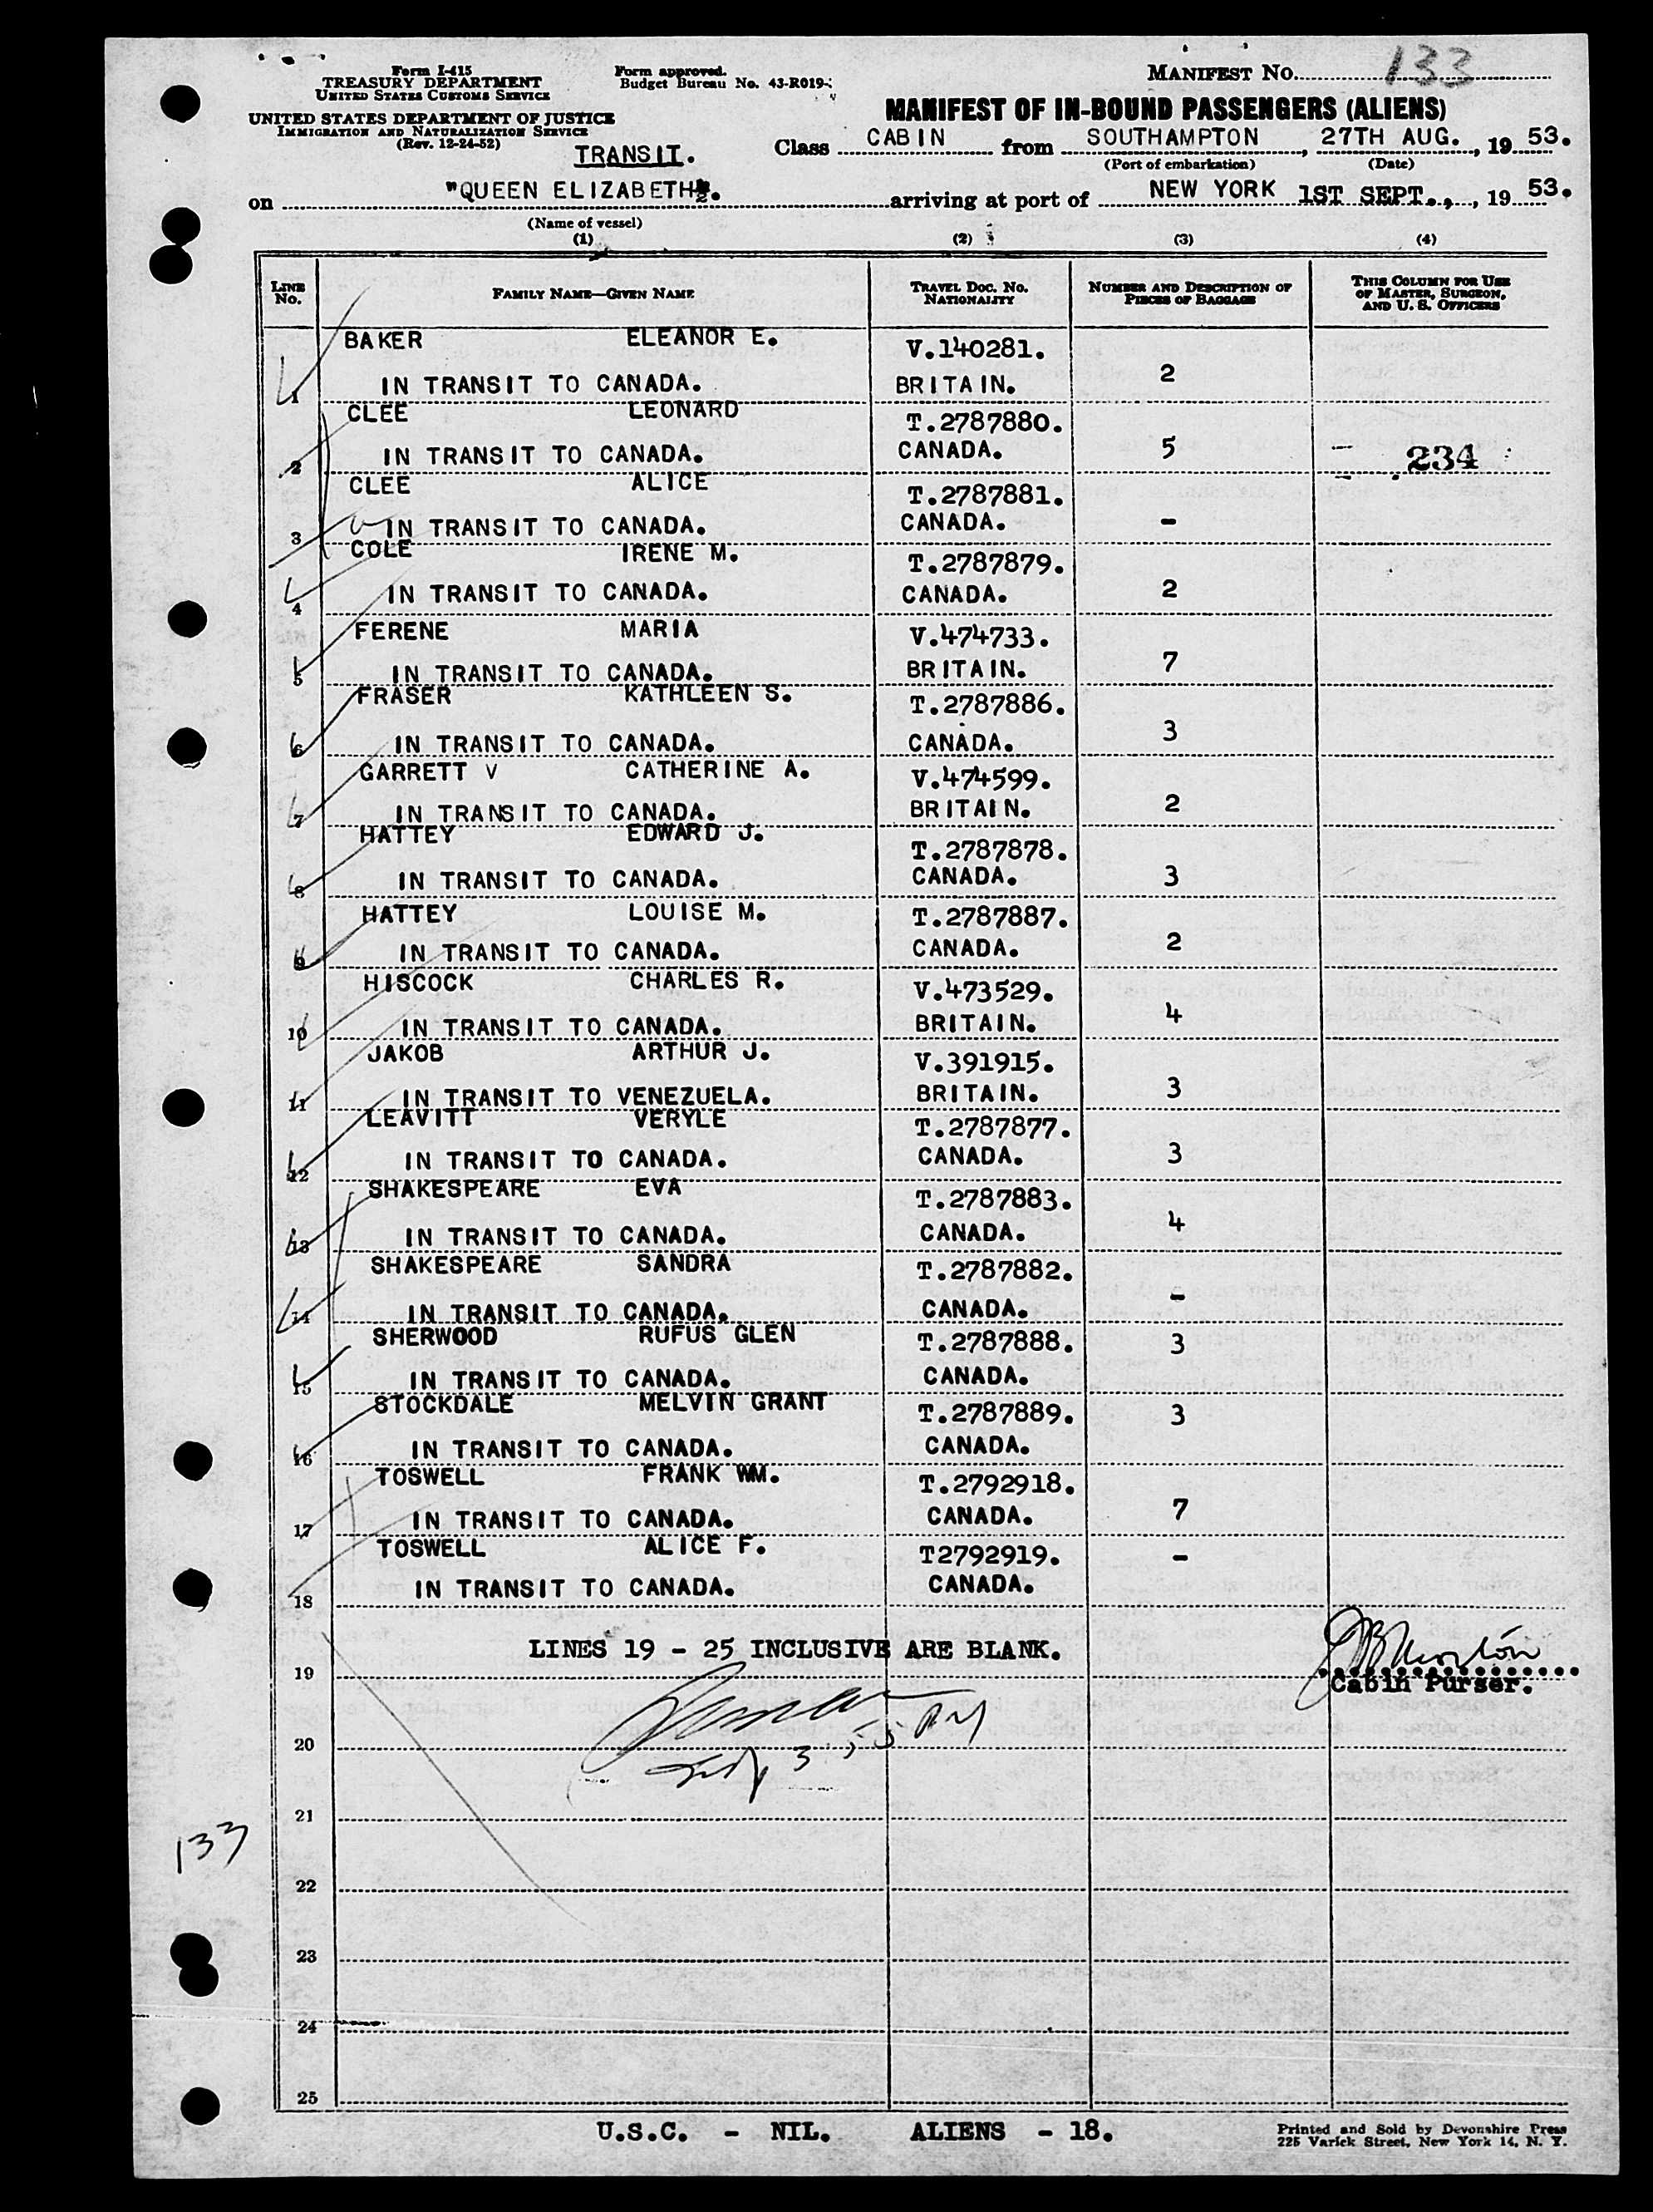 Form I-415
TREASURY DEPARTMENT
UNITED STATES CUSTOMS SERVICE
UNITED STATES DEPARTMENT OF JUSTICE
IMMIGRATION AND NATURALIZATION SERVICE
(Rev. 12-24-52)
TRANSIT.
Form approved.
Budget Bureau No. 43-R019-
MANIFEST No. 133
MANIFEST OF IN-BOUND PASSENGERS (ALIENS)
Class CABIN from SOUTHAMPTON, 27TH AUG., 19 53.
(Port of embarkation) (Date)
on "QUEEN ELIZABETH". arriving at port of NEW YORK 1ST SEPT., 19 53.
(Name of vessel)
(1) (2) (3) (4)
LINE No. FAMILY NAME—GIVEN NAME TRAVEL DOC. NO. NATIONALITY NUMBER AND DESCRIPTION OF PIECES OF BAGGAGE THIS COLUMN FOR USE OF MASTER, SURGEON, AND U. S. OFFICERS
BAKER ELEANOR E. V.140281.
1 IN TRANSIT TO CANADA. BRITAIN. 2
CLEE LEONARD T.2787880.
2 IN TRANSIT TO CANADA. CANADA. 5 - 234
CLEE ALICE T.2787881.
3 IN TRANSIT TO CANADA. CANADA. -
COLE IRENE M. T.2787879.
4 IN TRANSIT TO CANADA. CANADA. 2
FERENE MARIA V.474733.
5 IN TRANSIT TO CANADA. BRITAIN. 7
FRASER KATHLEEN S. T.2787886.
6 IN TRANSIT TO CANADA. CANADA. 3
GARRETT V CATHERINE A. V.474599.
7 IN TRANSIT TO CANADA. BRITAIN. 2
HATTEY EDWARD J. T.2787878.
8 IN TRANSIT TO CANADA. CANADA. 3
HATTEY LOUISE M. T.2787887.
9 IN TRANSIT TO CANADA. CANADA. 2
HISCOCK CHARLES R. V.473529.
10 IN TRANSIT TO CANADA. BRITAIN. 4
JAKOB ARTHUR J. V.391915.
11 IN TRANSIT TO VENEZUELA. BRITAIN. 3
LEAVITT VERYLE T.2787877.
12 IN TRANSIT TO CANADA. CANADA. 3
SHAKESPEARE EVA T.2787883.
13 IN TRANSIT TO CANADA. CANADA. 4
SHAKESPEARE SANDRA T.2787882.
14 IN TRANSIT TO CANADA. CANADA. -
SHERWOOD RUFUS GLEN T.2787888. 3
15 IN TRANSIT TO CANADA. CANADA.
STOCKDALE MELVIN GRANT T.2787889. 3
16 IN TRANSIT TO CANADA. CANADA.
TOSWELL FRANK WM. T.2792918.
17 IN TRANSIT TO CANADA. CANADA. 7
TOSWELL ALICE F. T2792919. -
18 IN TRANSIT TO CANADA. CANADA.
LINES 19 - 25 INCLUSIVE ARE BLANK.
19
Cabin Purser.
20
21
133
22
23
24
25
U.S.C. - NIL. ALIENS - 18.
Printed and Sold by Devonshire Press
225 Varick Street, New York 14, N. Y.